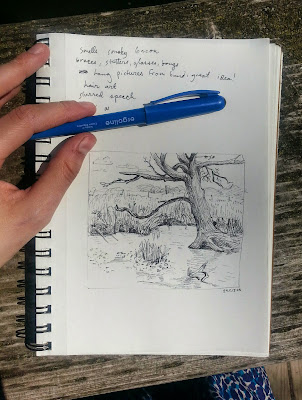 Smells smoky bacon
braces, stutters, glasses, bangs
hang pictures from hand. great idea!
hair art
slurred speech
ergoline